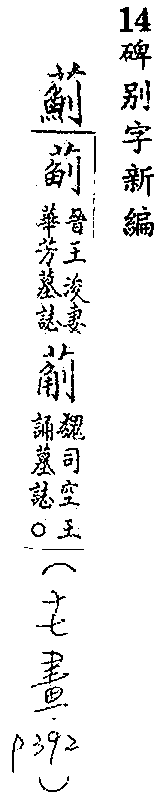 14碑别字新編
薊
晉王浚妻
華芳墓誌
魏司空王
誦墓誌○
(十七畫
p392)